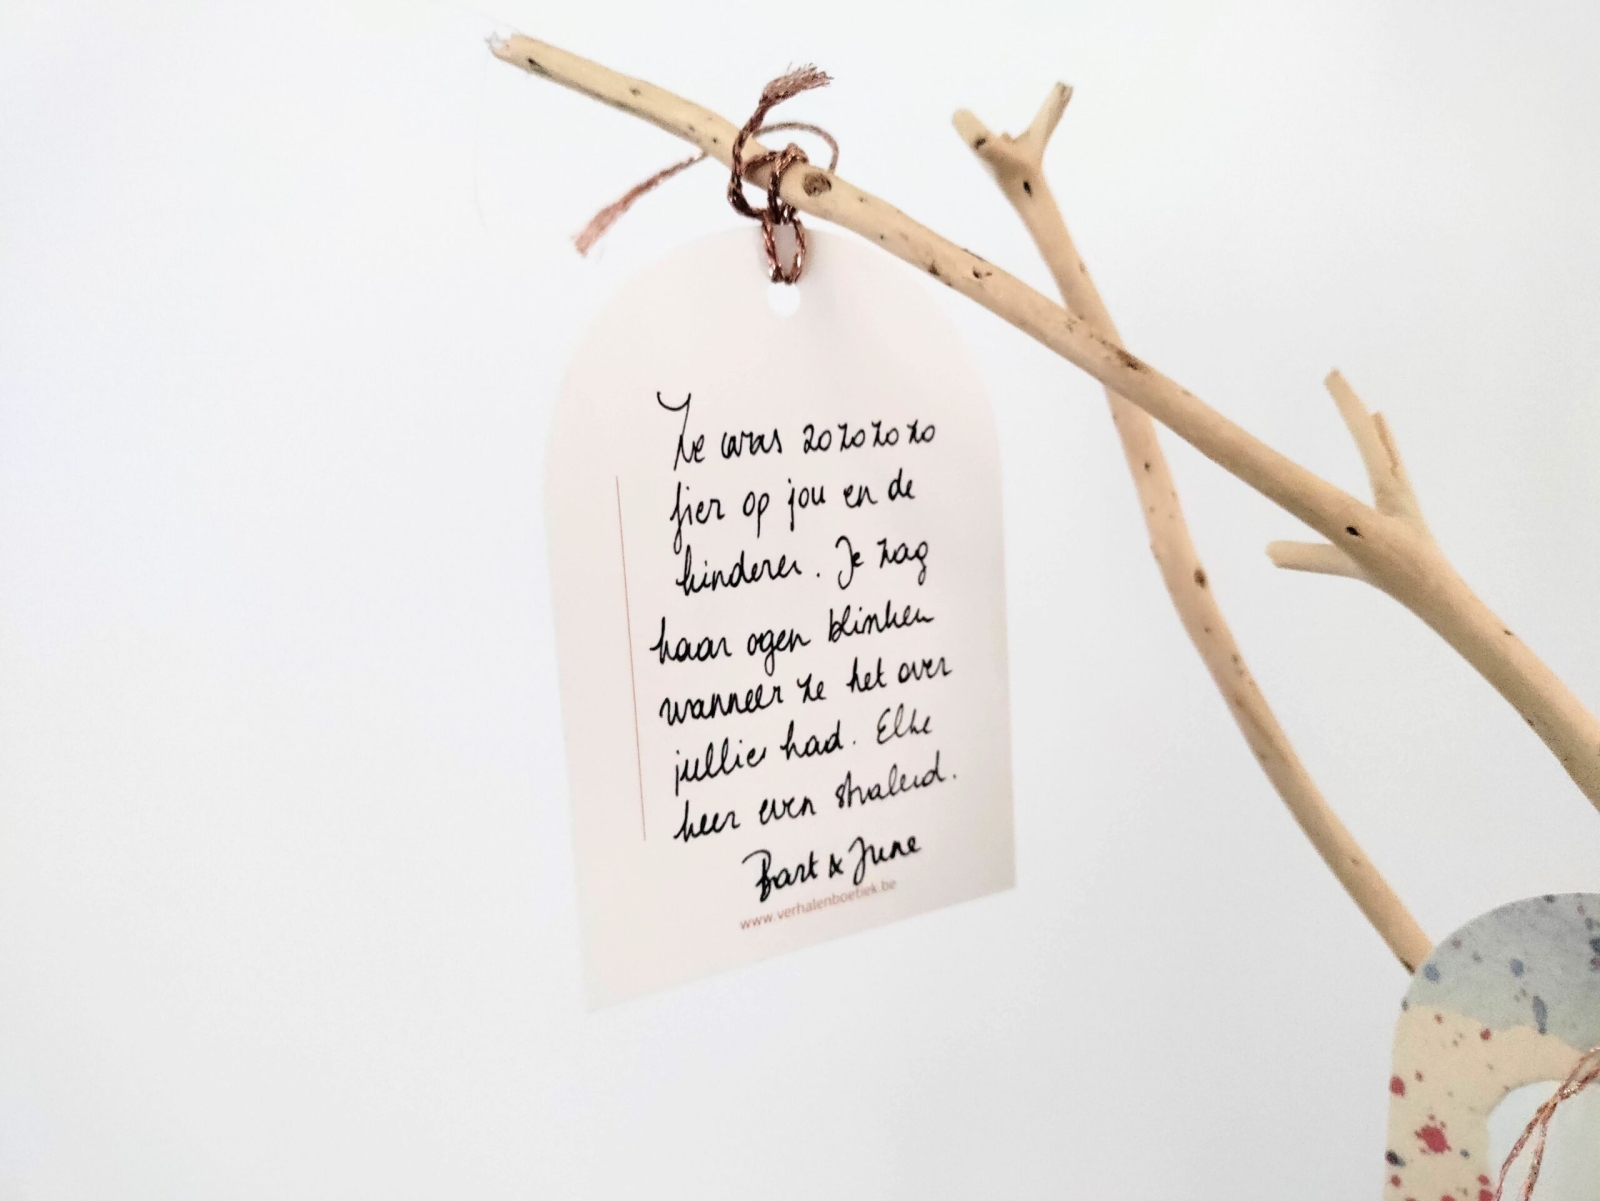 Ze was zozozozo
fier op jou en de
kinderen. Je zag
haar ogen blinken
wanneer ze het over
jullie had. Elke
keer even stralend.
Bart & June
www.verhalenboetiek.be